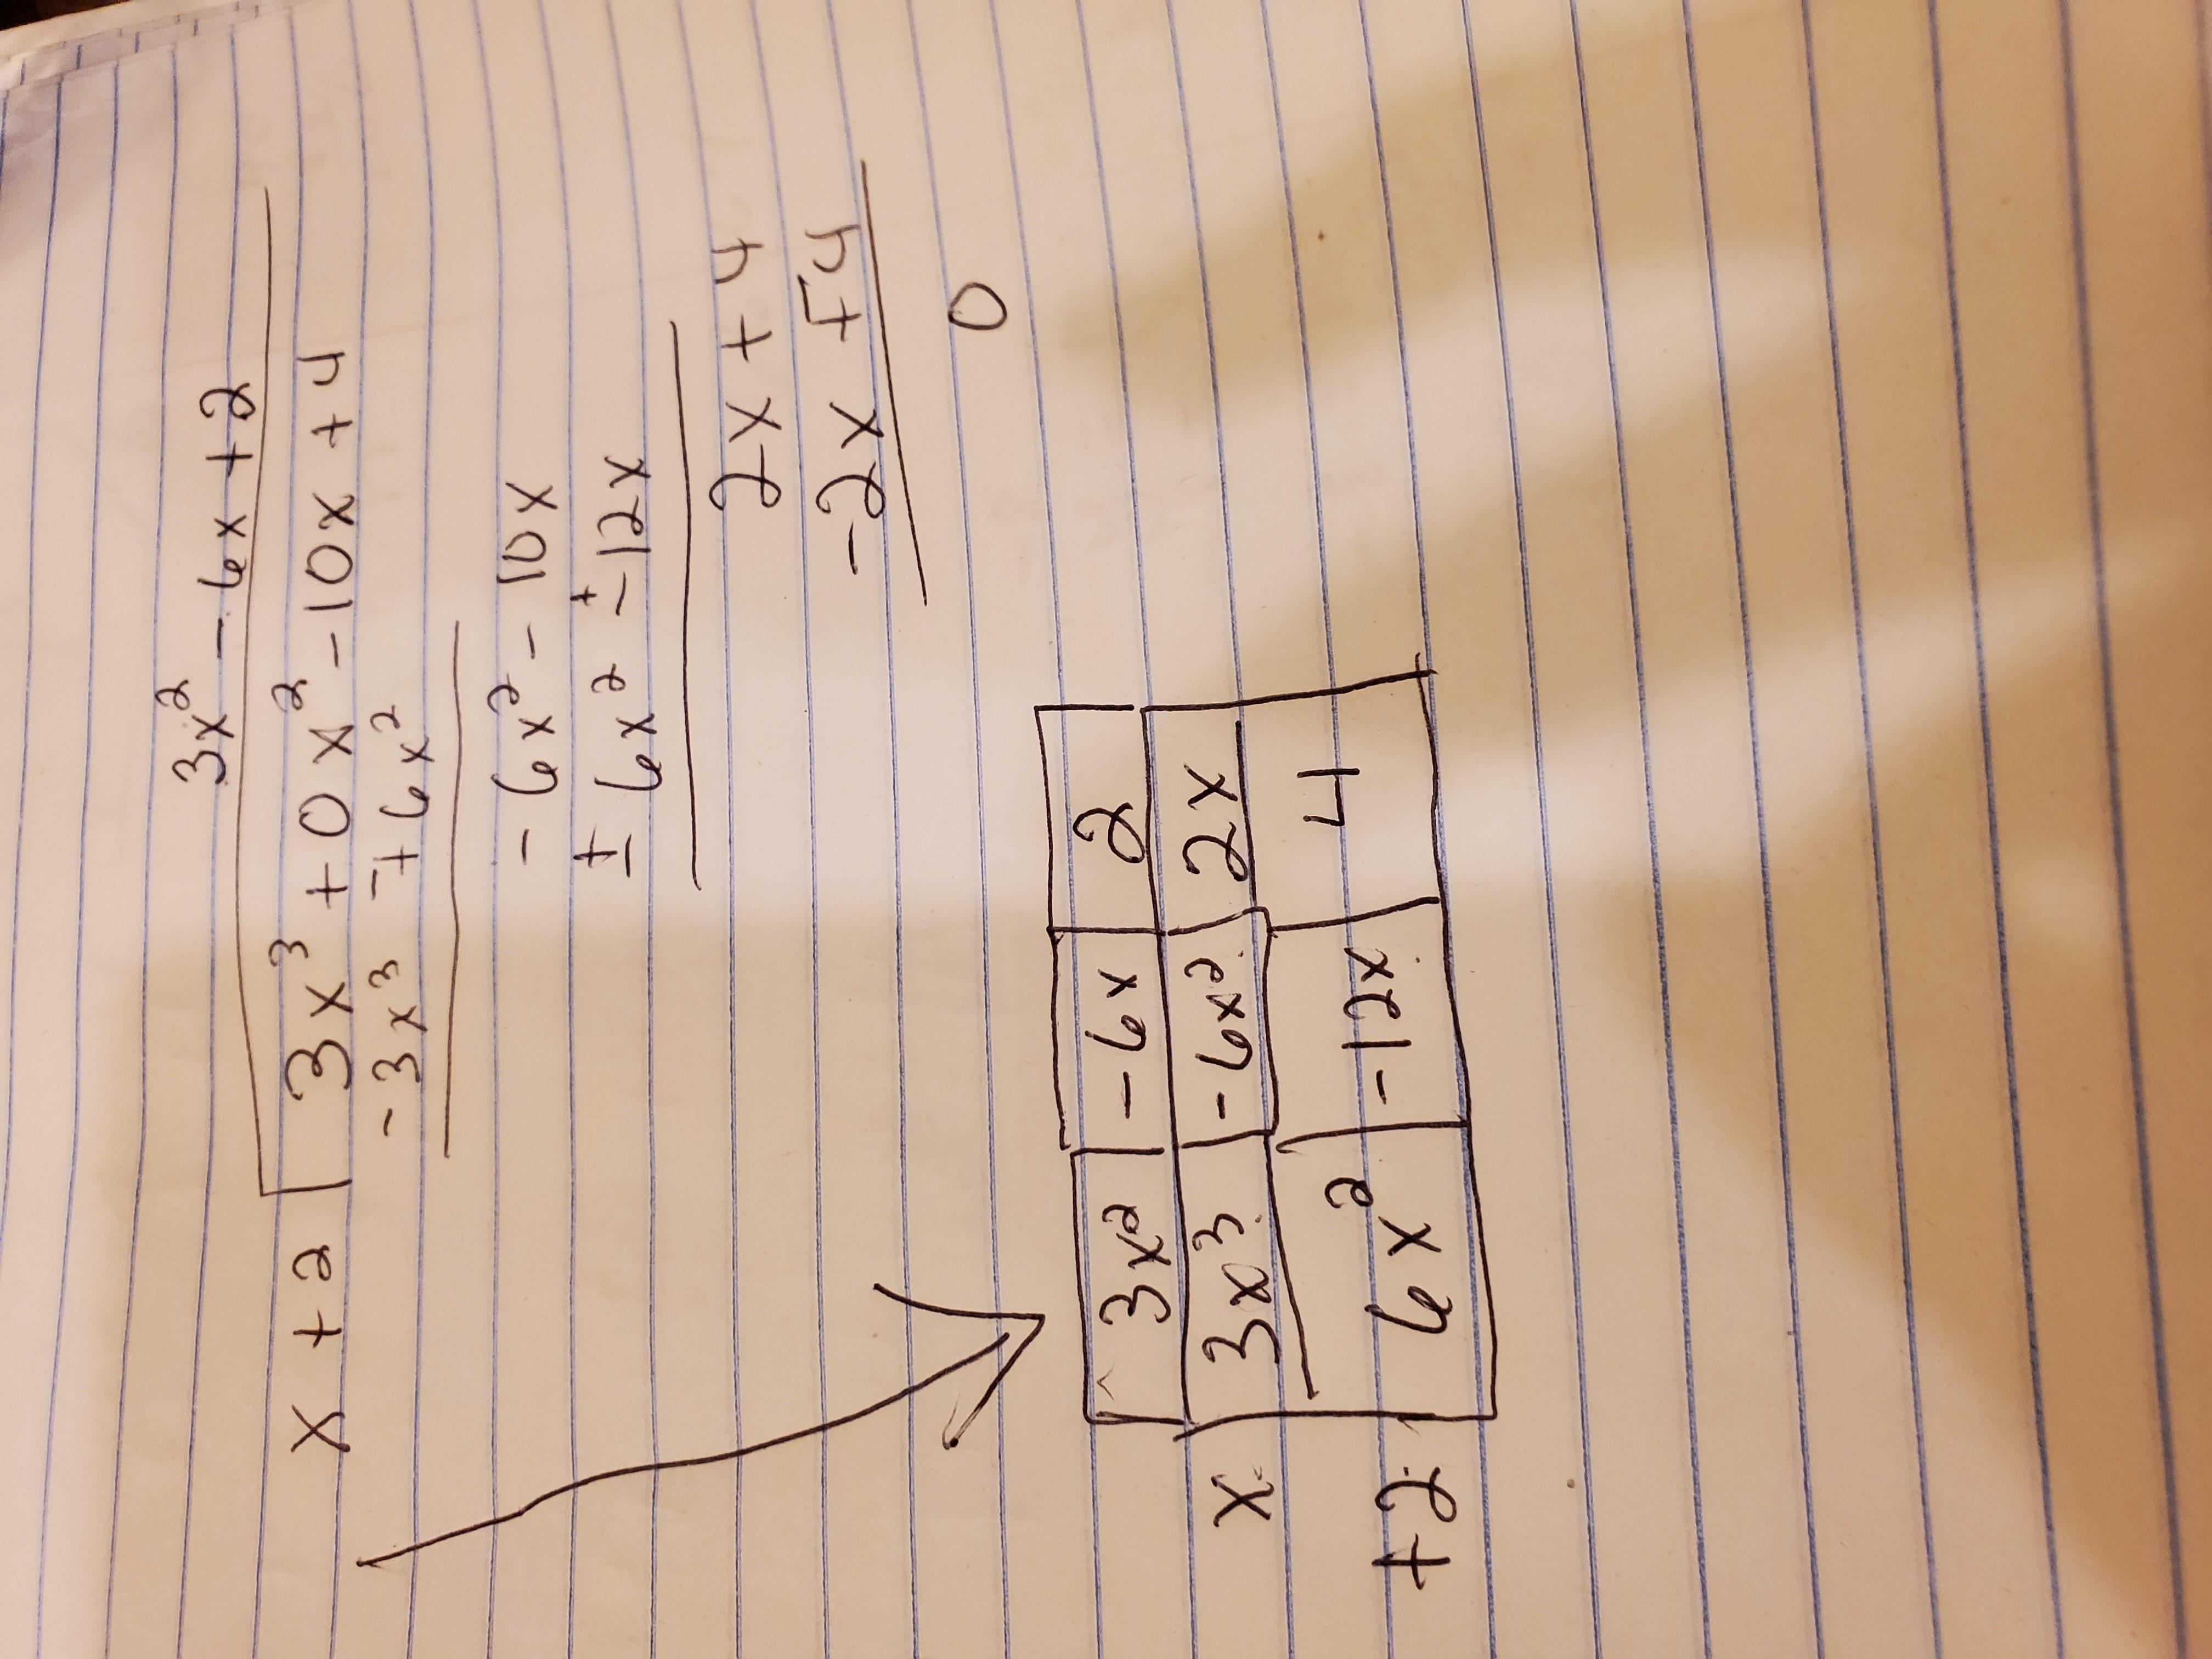 3x² - 6x + 2
x + 2 3x³ + 0x² - 10x + 4
- 3x³ -+ 6x²
- 6x² - 10x
± 6x² +- 12x
2x + 4
-2x +- 4
0
3x² - 6x 2
x 3x³ - 6x² 2x
+2 6x² - 12x 4